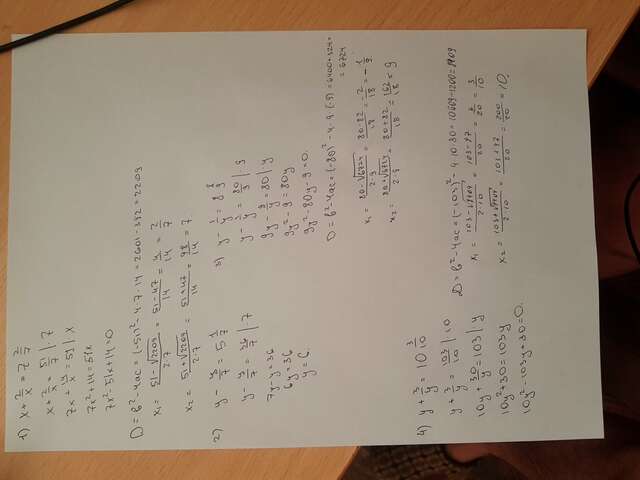 1) x + 2/x = 7 2/7
x + 2/x = 51/7 | · 7
7x + 14/x = 51 | · x
7x² + 14 = 51x
7x² - 51x + 14 = 0
D = b² - 4ac = (-51)² - 4 · 7 · 14 = 2601 - 392 = 2209
x₁ = (51 - √2209)/(2 · 7) = (51 - 47)/14 = 4/14 = 2/7
x₂ = (51 + √2209)/(2 · 7) = (51 + 47)/14 = 98/14 = 7
2) y - y/7 = 5 1/7
y - y/7 = 36/7 | · 7
7y - y = 36
6y = 36
y = 6.
3) y - 1/y = 8 8/9
y - 1/y = 80/9 | · 9
9y - 9/y = 80 | · y
9y² - 9 = 80y
9y² - 80y - 9 = 0.
D = b² - 4ac = (-80)² - 4 · 9 · (-9) = 6400 + 324 =
= 6724
x₁ = (80 - √6724)/(2 · 9) = (80 - 82)/18 = -2/18 = -1/9
x₂ = (80 + √6724)/(2 · 9) = (80 + 82)/18 = 162/18 = 9
4) y + 3/y = 10 3/10
y + 3/y = 103/10 | · 10
10y + 30/y = 103 | y
10y² + 30 = 103y
10y² - 103y + 30 = 0.
D = b² - 4ac = (-103)² - 4 · 10 · 30 = 10609 - 1200 = 9409
x₁ = (103 - √9409)/(2 · 10) = (103 - 97)/20 = 6/20 = 3/10
x₂ = (103 + √9409)/(2 · 10) = (103 + 97)/20 = 200/20 = 10.